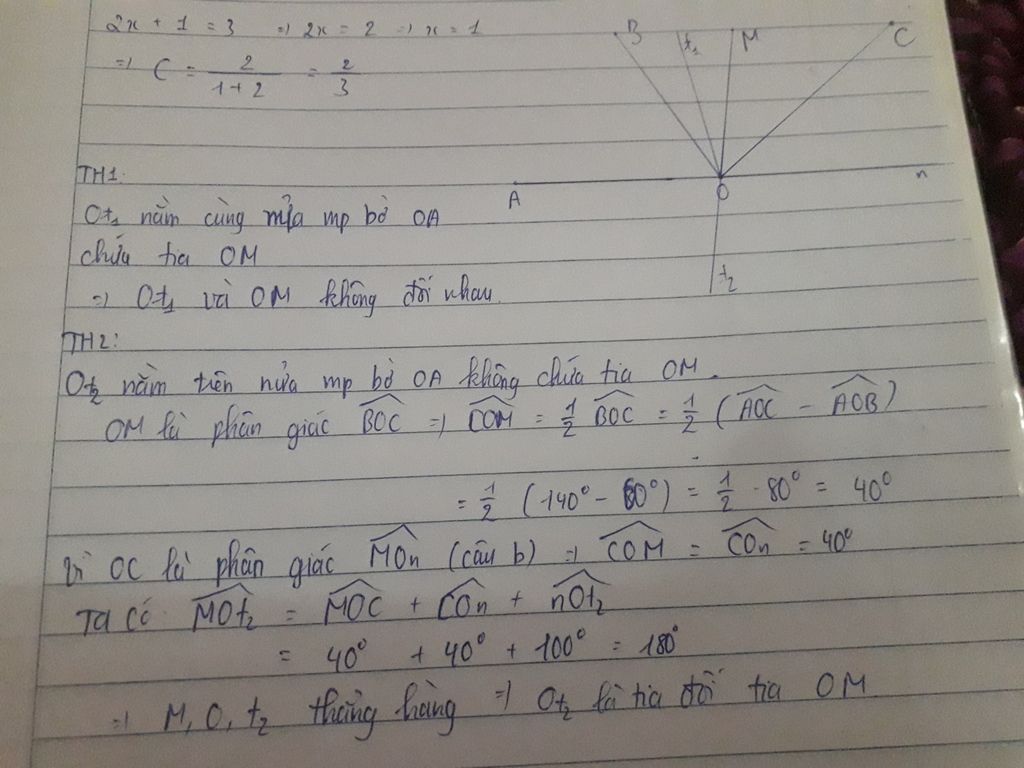 2x + 1 = 3 => 2x = 2 => x = 1
=> C = \frac{2}{1+2} = \frac{2}{3}
B t₁ M C
A O n
t₂
TH1:
Ot₁ nằm cùng nửa mp bờ OA
chứa tia OM
=> Ot₁ và OM không đối nhau.
TH2:
Ot₂ nằm trên nửa mp bờ OA không chứa tia OM.
OM là phân giác \widehat{BOC} => \widehat{COM} = \frac{1}{2} \widehat{BOC} = \frac{1}{2} (\widehat{AOC} - \widehat{AOB})
= \frac{1}{2} (140° - 60°) = \frac{1}{2} . 80° = 40°
Vì OC là phân giác \widehat{MOn} (câu b) => \widehat{COM} = \widehat{COn} = 40°
Ta có \widehat{MOt₂} = \widehat{MOC} + \widehat{COn} + \widehat{nOt₂}
= 40° + 40° + 100° = 180°
=> M, O, t₂ thẳng hàng => Ot₂ là tia đối tia OM